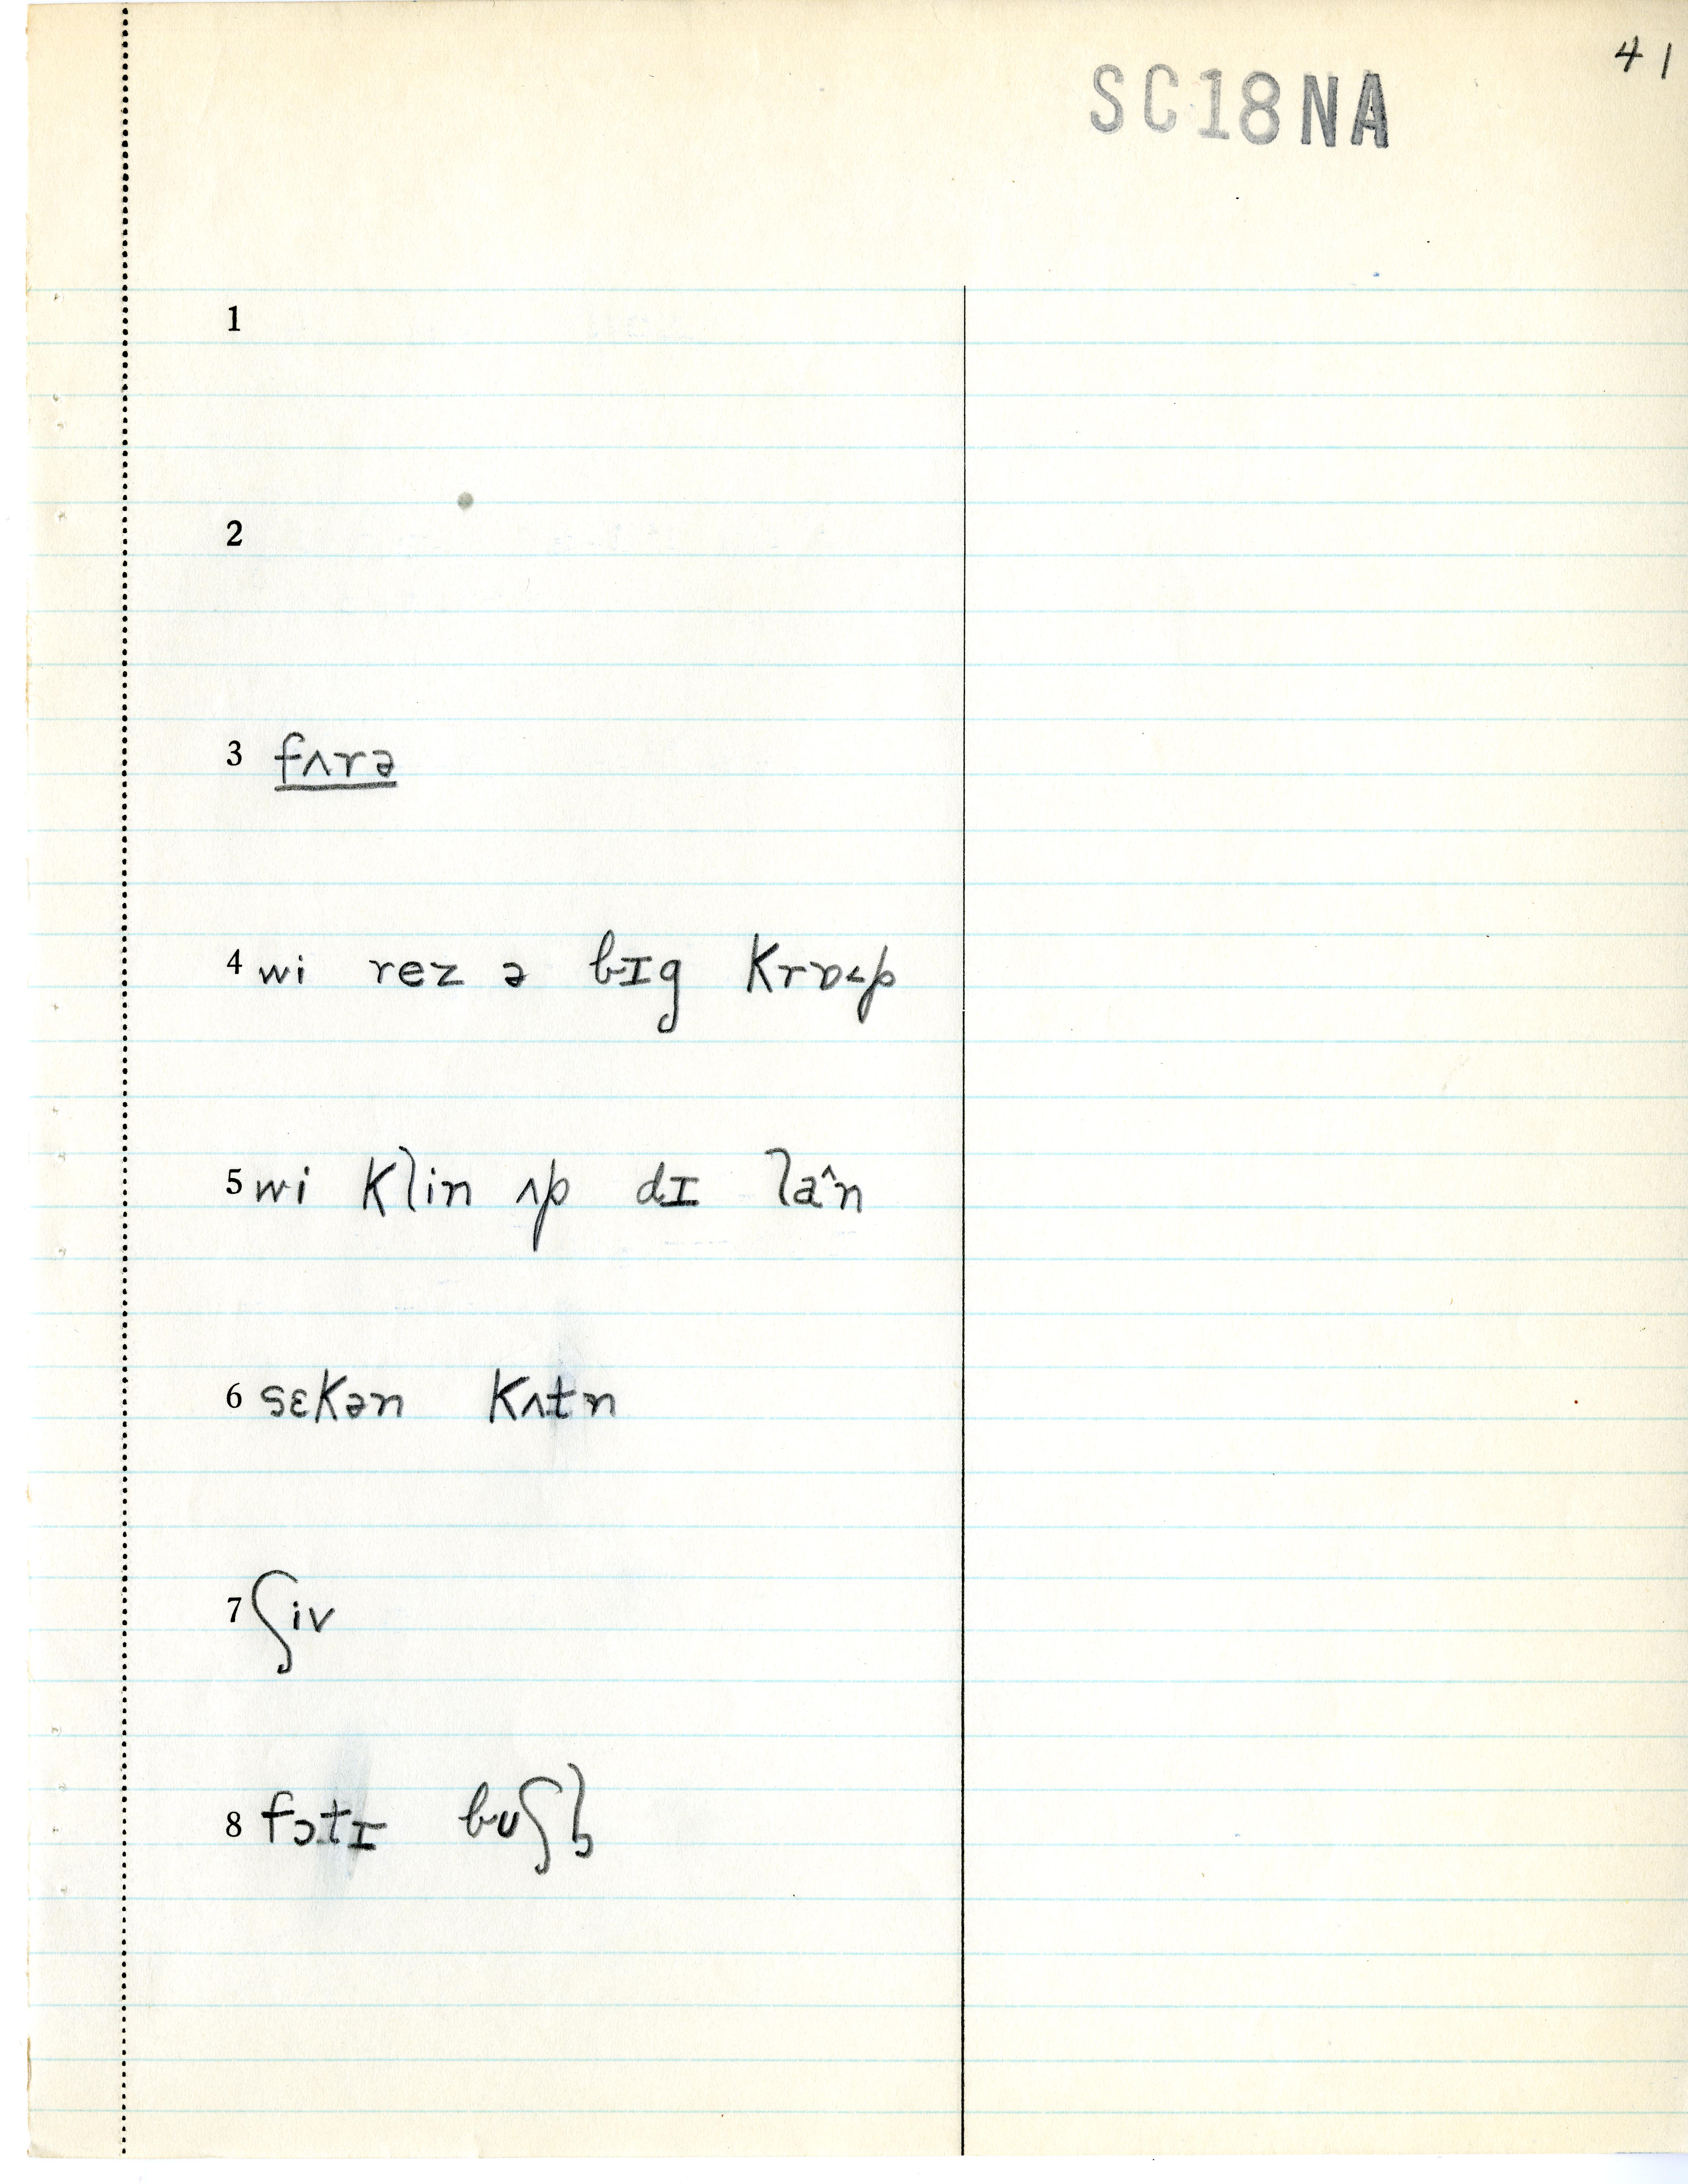 41
SC18NA
1
2
3 fʌrə
4 wi rez ə bɪg krɒ˂p
5 wi klin ʌp dɪ la^n
6 sɛkən kʌtn
7 ʃiv
8 fɔtɪ buʃl̩